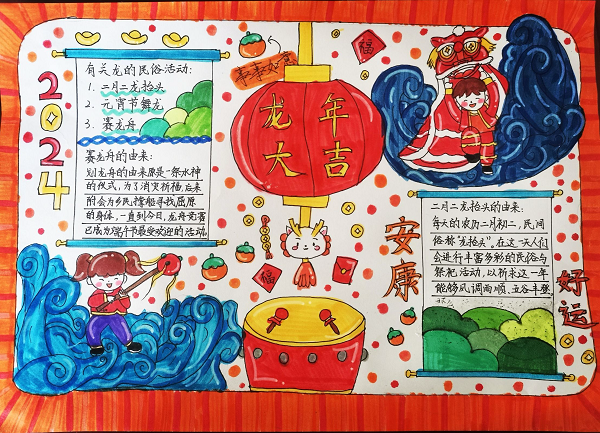 2024
有关龙的民俗活动:
1. 二月二龙抬头
2. 元宵节舞龙
3. 赛龙舟
赛龙舟的由来:
划龙舟的由来原是一祭水神
的仪式,为了消灾祈福,后来
附会为乡民撑船寻找屈原
的身体,一直到今日,龙舟竞赛
已成为端午节最受欢迎的活动。
事事如意
龙年
大吉
福
福
福
安康
二月二龙抬头的由来:
每天的农历二月初二,民间
俗称“龙抬头”。在这一天人们
会进行丰富多彩的民俗与
祭祀活动,以祈求这一年
能够风调雨顺、五谷丰登
好运